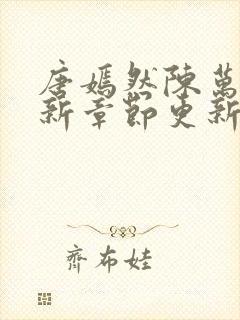 唐嫣然陳萬
新章節更新
齊布娃